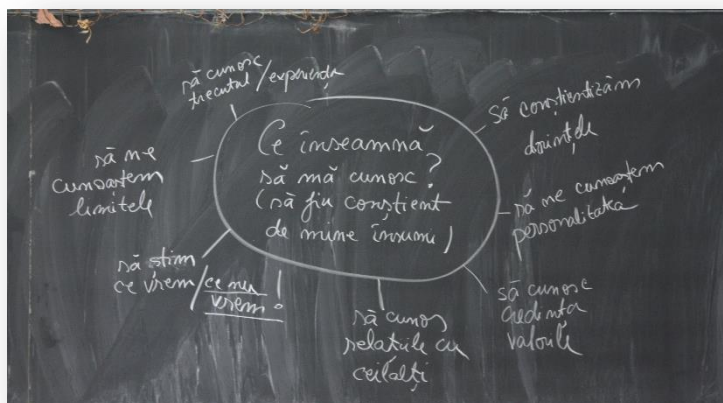 Ce înseamnă
să mă cunosc?
(să fiu conștient
de mine însumi)
să cunosc
trecutul/experiența
să conștientizăm
dorințele
să ne cunoaștem
personalitatea
să cunosc
credința
valorile
să cunos
relațiile cu
ceilalți
să știm
ce vrem/ce nu
vrem!
să ne
cunoaștem
limitele